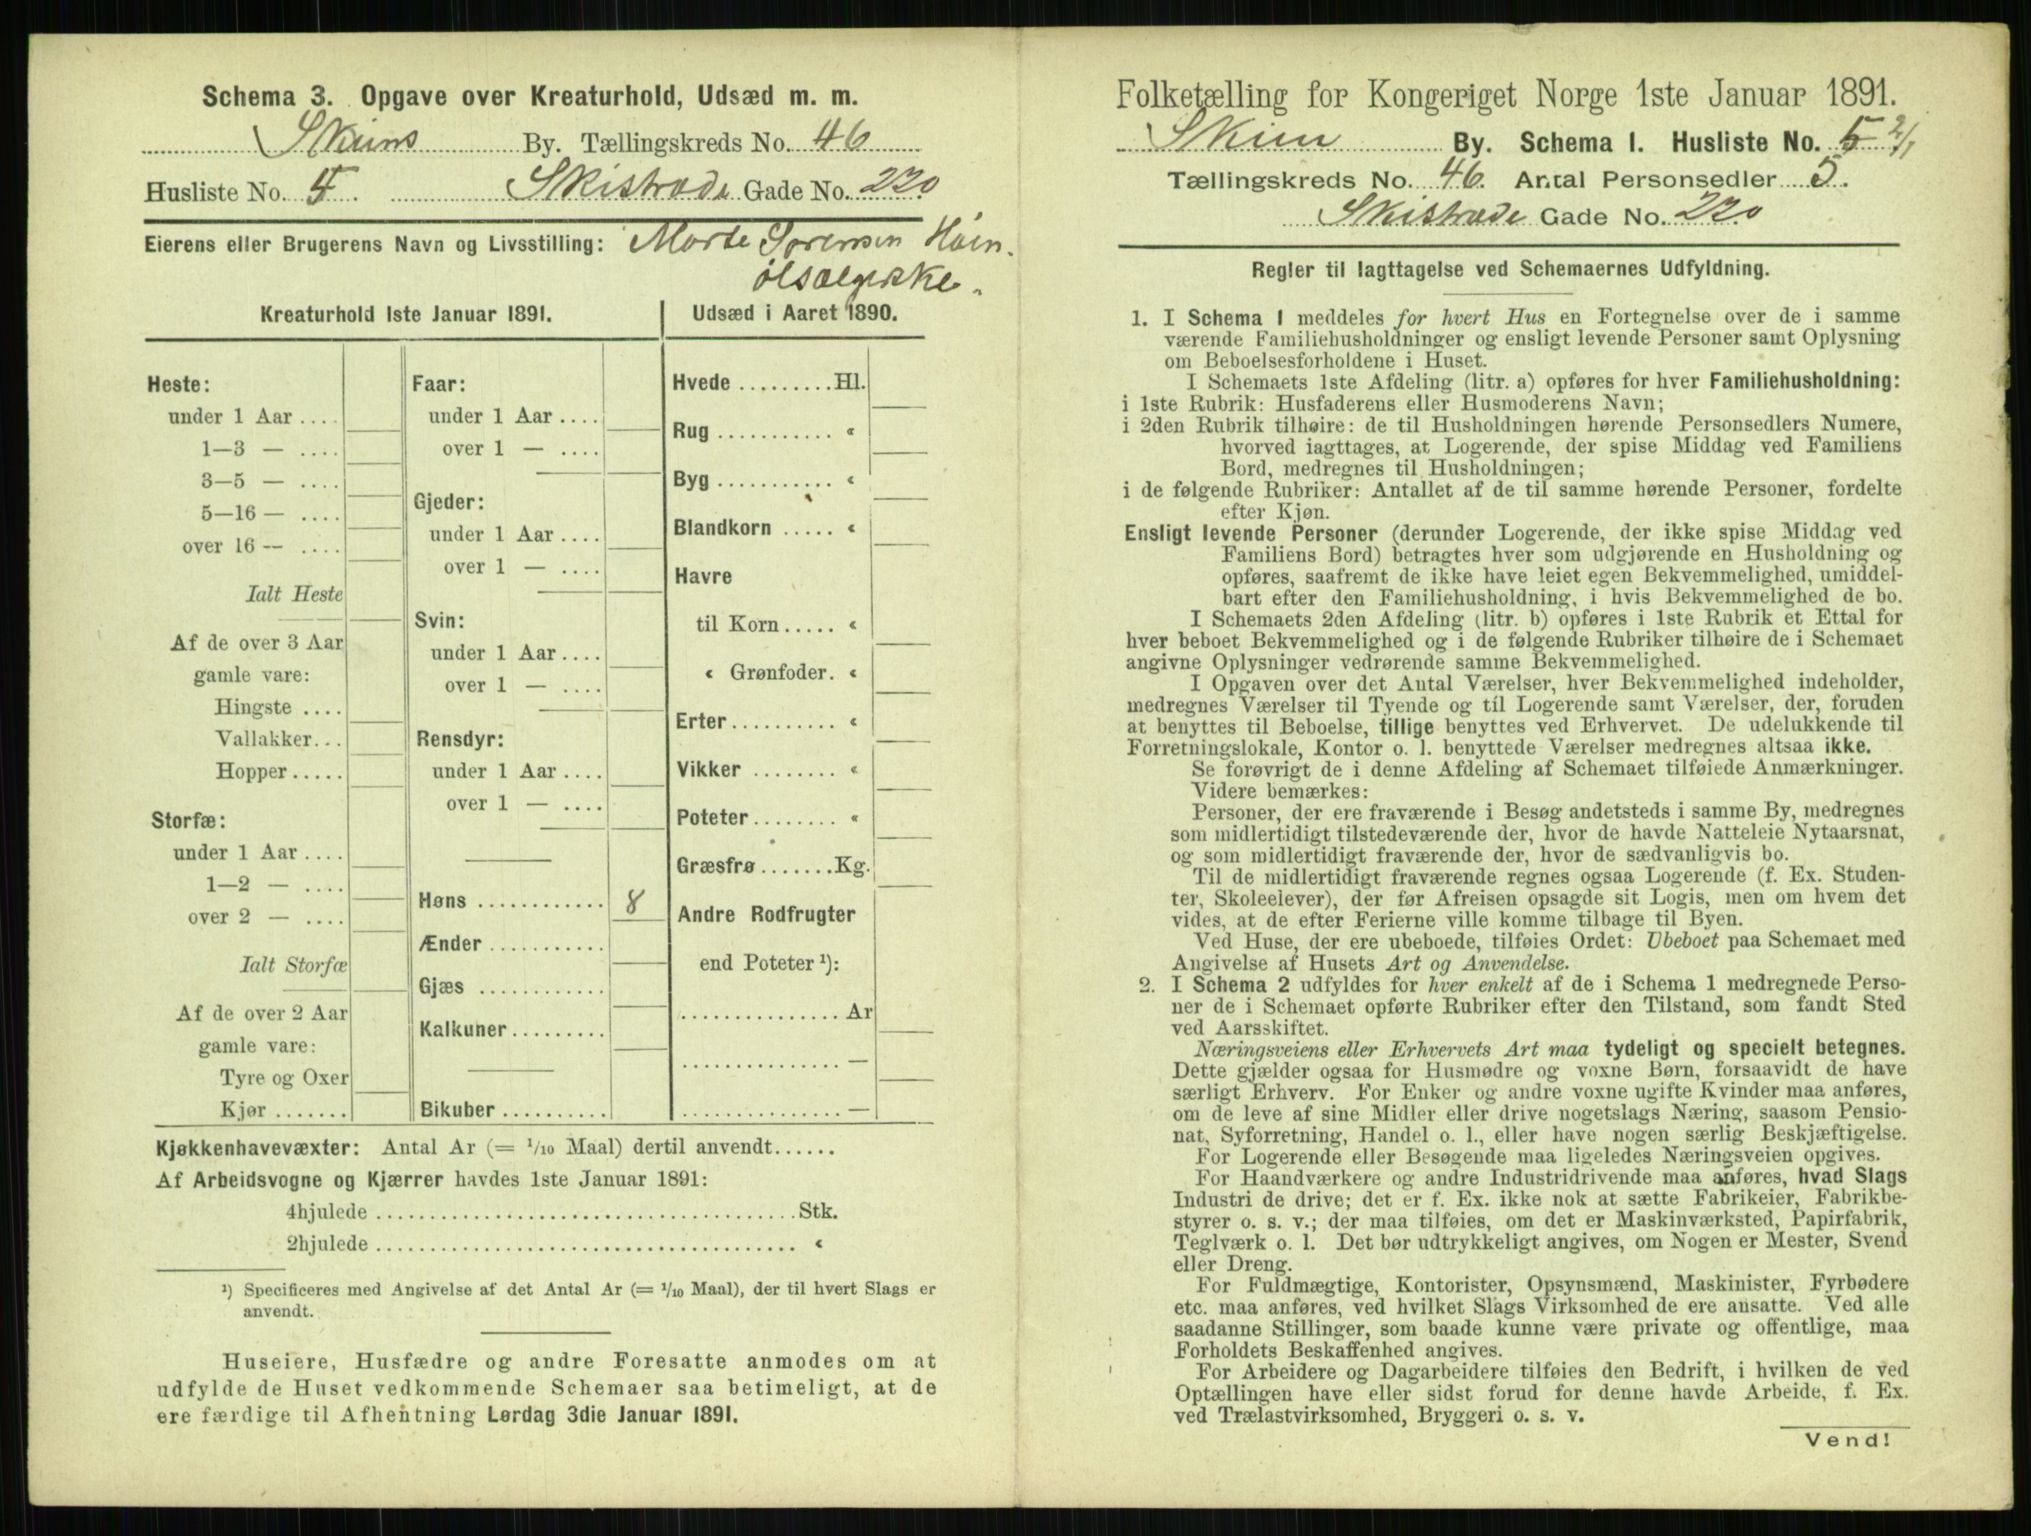 Schema 3. Opgave over Kreaturhold, Udsæd m. m.
Skiens By. Tællingskreds No. 46
Husliste No. 5. Skistræde Gade No. 220
Eierens eller Brugerens Navn og Livsstilling: Marte Sørensen Høien.
ølsælgerske.
Kreaturhold 1ste Januar 1891.
Heste:
under 1 Aar ....
1—3 — ....
3—5 — ....
5—16 — ....
over 16 — ....
Ialt Heste
Af de over 3 Aar
gamle vare:
Hingste ....
Vallakker...
Hopper.....
Storfæ:
under 1 Aar ....
1—2 — ....
over 2 — ....
Ialt Storfæ
Af de over 2 Aar
gamle vare:
Tyre og Oxer
Kjør .......
Faar:
under 1 Aar ....
over 1 — ....
Gjeder:
under 1 Aar ....
over 1 — ....
Svin:
under 1 Aar ....
over 1 — ....
Rensdyr:
under 1 Aar ....
over 1 — ....
Høns ............ 8
Ænder ...........
Gjæs ............
Kalkuner.........
Bikuber ..........
Udsæd i Aaret 1890.
Hvede .........Hl.
Rug ........... «
Byg ........... «
Blandkorn ..... «
Havre
til Korn ..... «
« Grønfoder. «
Erter.......... «
Vikker ........ «
Poteter ........ «
Græsfrø .......Kg.
Andre Rodfrugter
end Poteter ¹):
...............Ar
............... —
...............—
Kjøkkenhavevæxter: Antal Ar (= 1/10 Maal) dertil anvendt......
Af Arbeidsvogne og Kjærrer havdes 1ste Januar 1891:
4hjulede .......................................Stk.
2hjulede ....................................... «
¹) Specificeres med Angivelse af det Antal Ar (= 1/10 Maal), der til hvert Slags er
anvendt.
Huseiere, Husfædre og andre Foresatte anmodes om at
udfylde de Huset vedkommende Schemaer saa betimeligt, at de
ere færdige til Afhentning Lørdag 3die Januar 1891.
Folketælling for Kongeriget Norge 1ste Januar 1891.
Skien By. Schema 1. Husliste No. 5 2/1
Tællingskreds No. 46. Antal Personsedler 5.
Skistræde Gade No. 220
Regler til Iagttagelse ved Schemaernes Udfyldning.
1. I Schema 1 meddeles for hvert Hus en Fortegnelse over de i samme
værende Familiehusholdninger og ensligt levende Personer samt Oplysning
om Beboelsesforholdene i Huset.
I Schemaets 1ste Afdeling (litr. a) opføres for hver Familiehusholdning:
i 1ste Rubrik: Husfaderens eller Husmoderens Navn;
i 2den Rubrik tilhøire: de til Husholdningen hørende Personsedlers Numere,
hvorved iagttages, at Logerende, der spise Middag ved Familiens
Bord, medregnes til Husholdningen;
i de følgende Rubriker: Antallet af de til samme hørende Personer, fordelte
efter Kjøn.
Ensligt levende Personer (derunder Logerende, der ikke spise Middag ved
Familiens Bord) betragtes hver som udgjørende en Husholdning og
opføres, saafremt de ikke have leiet egen Bekvemmelighed, umiddel-
bart efter den Familiehusholdning, i hvis Bekvemmelighed de bo.
I Schemaets 2den Afdeling (litr. b) opføres i 1ste Rubrik et Ettal for
hver beboet Bekvemmelighed og i de følgende Rubriker tilhøire de i Schemaet
angivne Oplysninger vedrørende samme Bekvemmelighed.
I Opgaven over det Antal Værelser, hver Bekvemmelighed indeholder,
medregnes Værelser til Tyende og til Logerende samt Værelser, der, foruden
at benyttes til Beboelse, tillige benyttes ved Erhvervet. De udelukkende til
Forretningslokale, Kontor o. l. benyttede Værelser medregnes altsaa ikke.
Se forøvrigt de i denne Afdeling af Schemaet tilføiede Anmærkninger.
Videre bemærkes:
Personer, der ere fraværende i Besøg andetsteds i samme By, medregnes
som midlertidigt tilstedeværende der, hvor de havde Natteleie Nytaarsnat,
og som midlertidigt fraværende der, hvor de sædvanligvis bo.
Til de midlertidigt fraværende regnes ogsaa Logerende (f. Ex. Studen-
ter, Skoleelever), der før Afreisen opsagde sit Logis, men om hvem det
vides, at de efter Ferierne ville komme tilbage til Byen.
Ved Huse, der ere ubeboede, tilføies Ordet: Ubeboet paa Schemaet med
Angivelse af Husets Art og Anvendelse.
2. I Schema 2 udfyldes for hver enkelt af de i Schema 1 medregnede Perso-
ner de i Schemaet opførte Rubriker efter den Tilstand, som fandt Sted
ved Aarsskiftet.
Næringsveiens eller Erhvervets Art maa tydeligt og specielt betegnes.
Dette gjælder ogsaa for Husmødre og voxne Børn, forsaavidt de have
særligt Erhverv. For Enker og andre voxne ugifte Kvinder maa anføres,
om de leve af sine Midler eller drive nogetslags Næring, saasom Pensio-
nat, Syforretning, Handel o. l., eller have nogen særlig Beskjæftigelse.
For Logerende eller Besøgende maa ligeledes Næringsveien opgives.
For Haandværkere og andre Industridrivende maa anføres, hvad Slags
Industri de drive; det er f. Ex. ikke nok at sætte Fabrikeier, Fabrikbe-
styrer o. s. v.; der maa tilføies, om det er Maskinværksted, Papirfabrik,
Teglværk o. l. Det bør udtrykkeligt angives, om Nogen er Mester, Svend
eller Dreng.
For Fuldmægtige, Kontorister, Opsynsmænd, Maskinister, Fyrbødere
etc. maa anføres, ved hvilket Slags Virksomhed de ere ansatte. Ved alle
saadanne Stillinger, som baade kunne være private og offentlige, maa
Forholdets Beskaffenhed angives.
For Arbeidere og Dagarbeidere tilføies den Bedrift, i hvilken de ved
Optællingen have eller sidst forud for denne havde Arbeide, f. Ex.
ved Trælastvirksomhed, Bryggeri o. s. v.
Vend!